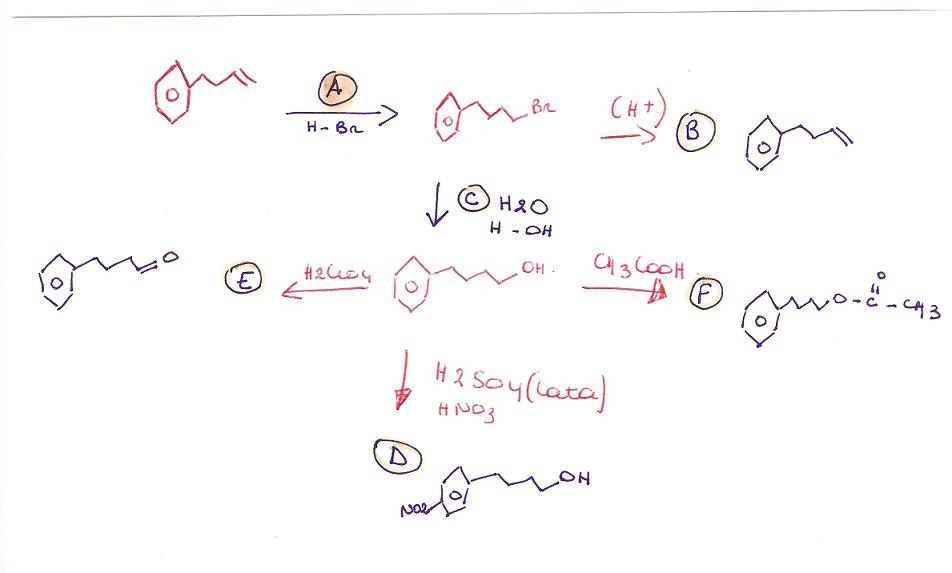 A
H-Br
Br
(H+)
B
C H2O
H-OH
O
E
H2CrO4
OH
CH3COOH
F
O-C-CH3
O
H2SO4 (cata)
HNO3
D
NO2
OH